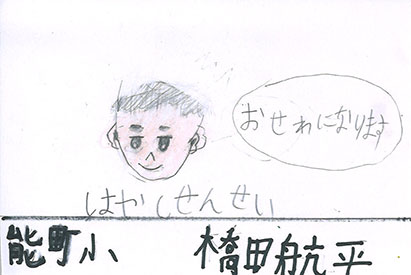 おせわになります
はやしせんせい
能町小 橋田航平